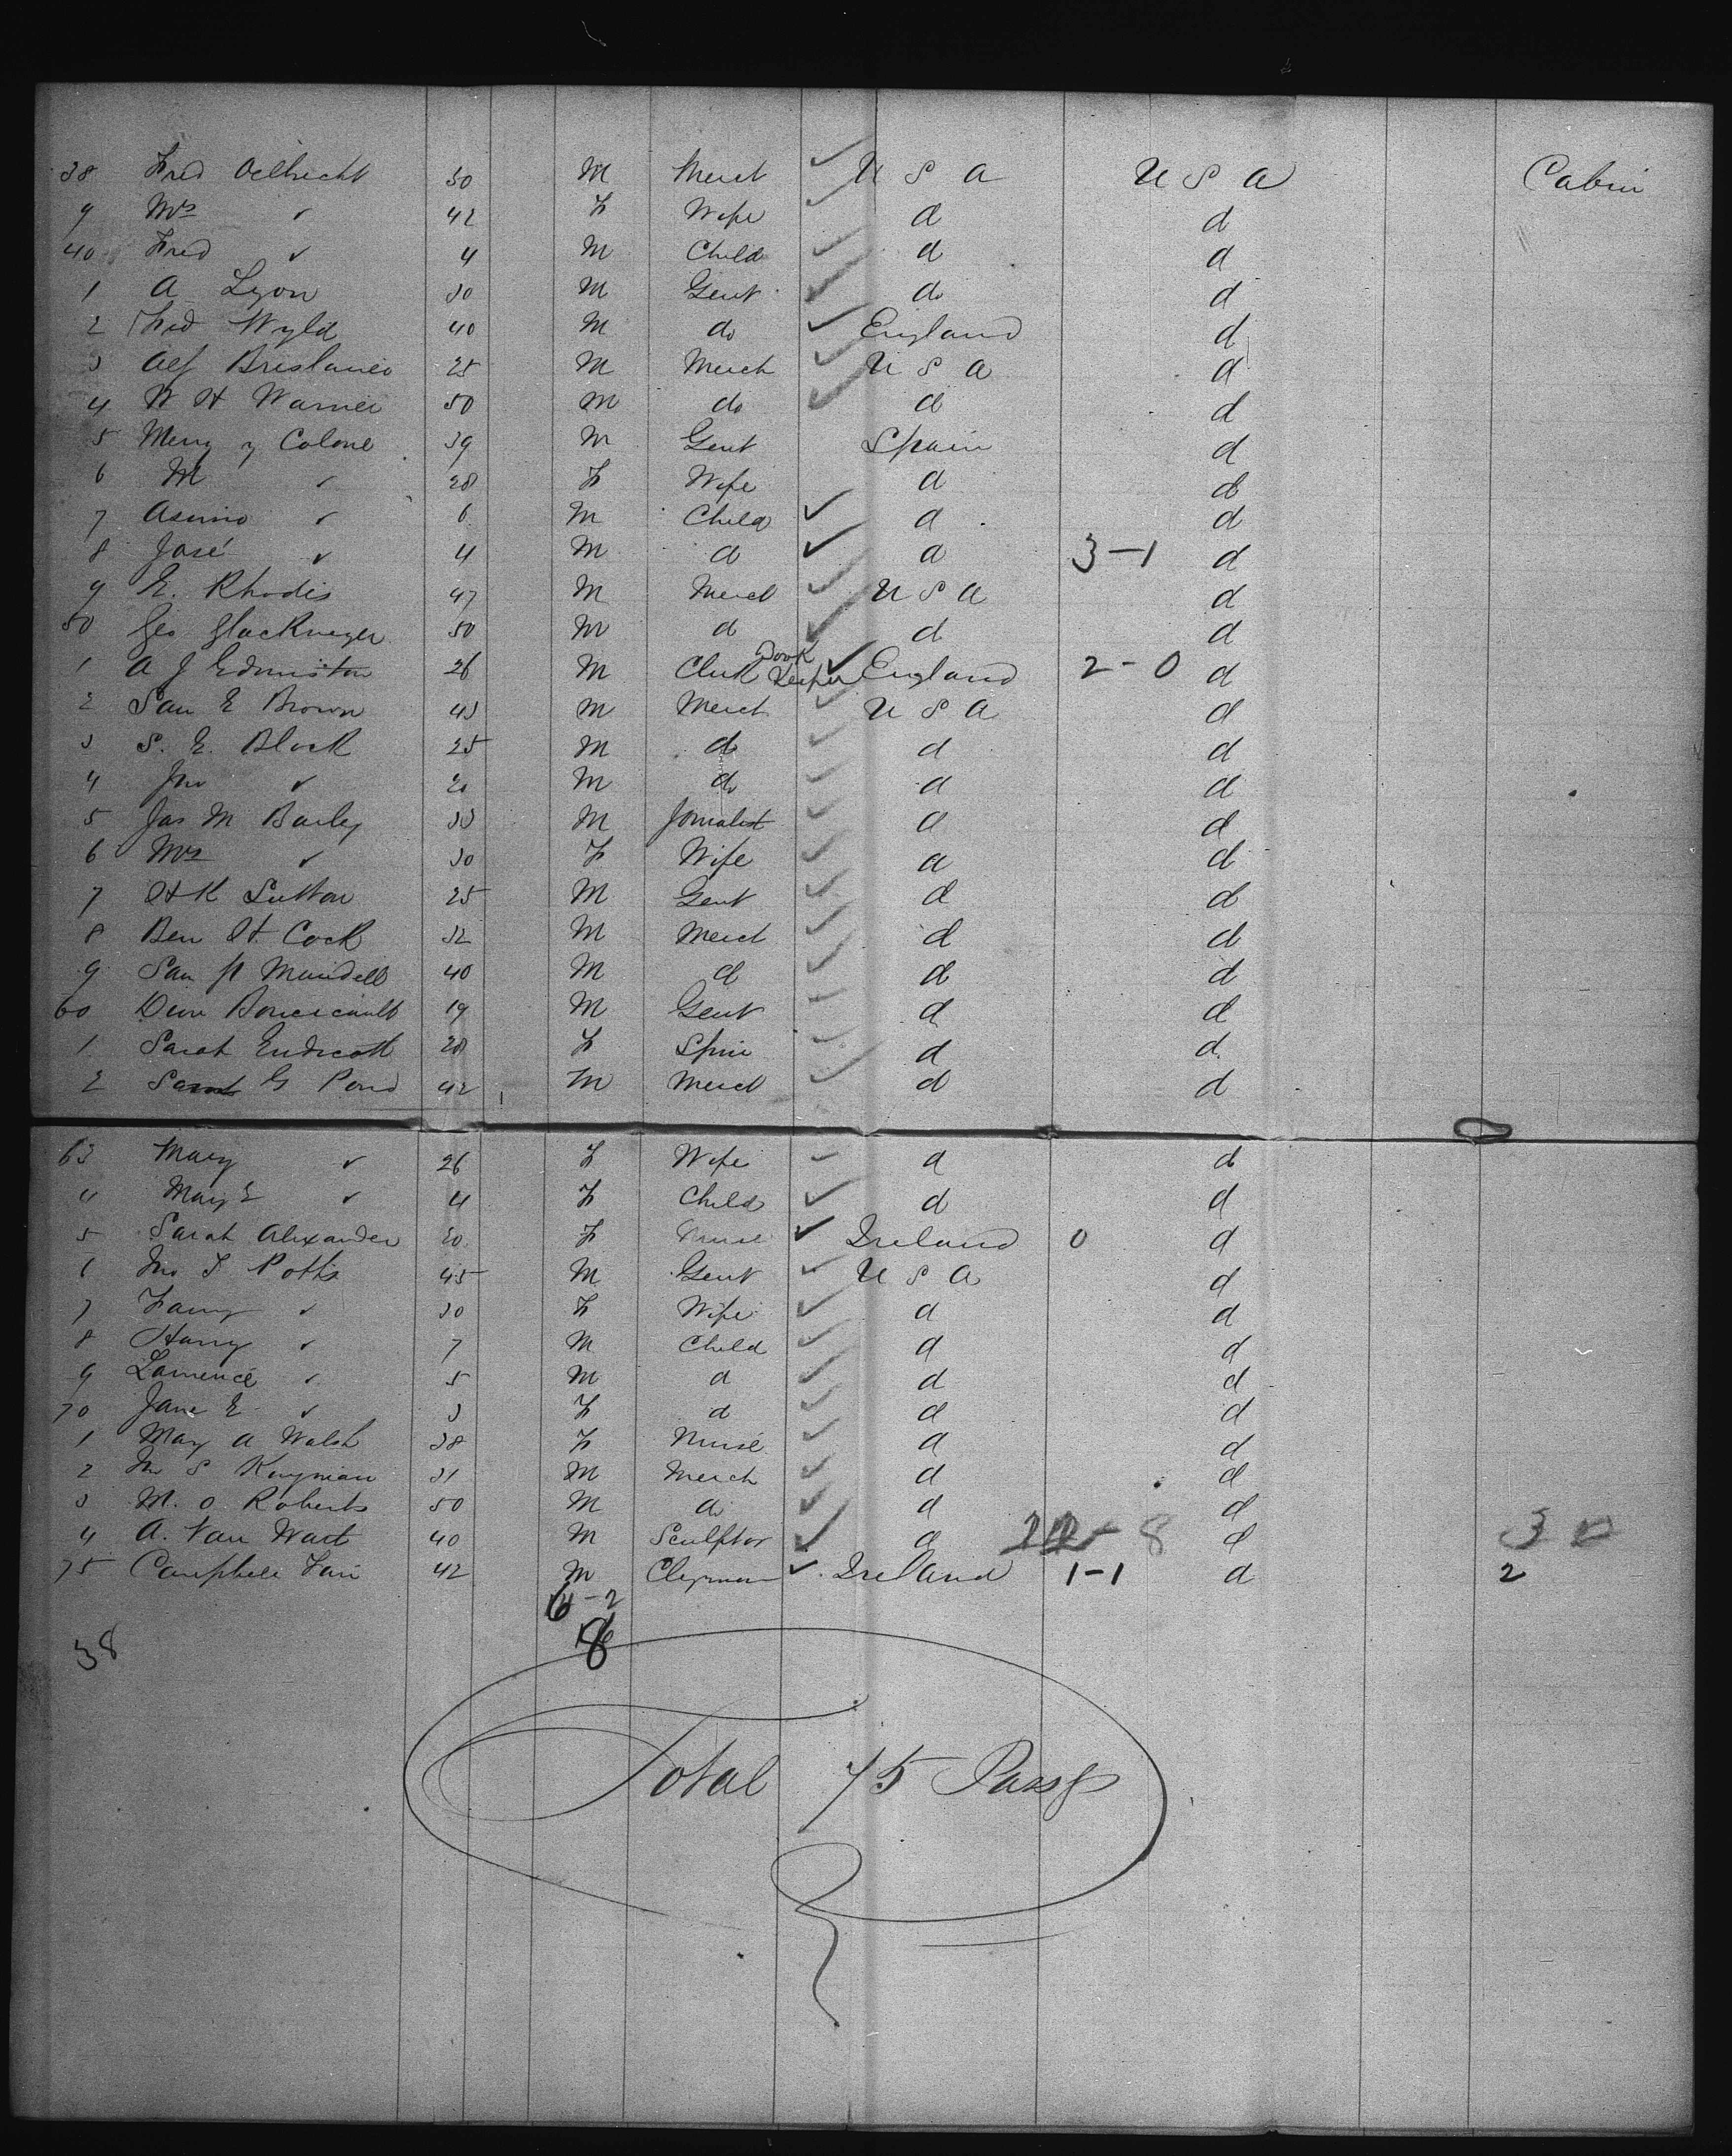 38 Fred Oelbricht 50 M Merct U S A U S A Cabin
9 Mrs " 42 F Wife d d
40 Fred " 4 M Child d d
1 A Lyon 30 M Gent do d
2 Fred Wyld 40 M do England d
3 Alf 25 M Merch U S A d
4 W H Warner 50 M do d d
5 Merry y Colone 39 M Gent Spain d
6 M " 28 F Wife d d
7 " 6 M Child d d
8 José " 4 M d d 3-1 d
9 E. Rhodis 47 M Merct U S A d
50 Geo 50 M d d d
1 A J Edmiston 26 M Clerk Book Keeper England 2-0 d
2 Sam E Brown 43 M Merch U S A d
3 S. E. Block 25 M do d d
4 Jno " 20 M do d d
5 Jas M Baily 33 M Jornalist d d
6 Mrs " 30 F Wife d d
7 H K Sutton 25 M Gent d d
8 Ben H. Cock 32 M Merct d d
9 Sam Mundell 40 M d d d
60 Dion Boucicault 19 M Gent d d
1 Sarah Endicott 28 F Spin d d
2 G Pond 42 M Merct d d
63 Mary " 26 F Wife d d
4 Mary E " 4 F Child d d
5 Sarah Alexander 20 F Nurse Ireland 0 d
6 Jno T Potts 45 M Gent U S A d
7 Fanny " 30 F Wife d d
8 Harry " 7 M Child d d
9 Lawrence " 5 M d d d
70 Jane E " 3 F d d d
1 Mary A Walsh 38 F Nurse d d
2 Jno S Kingman 31 M Merch d d
3 M. O. Roberts 50 M do d d
4 A. Van Wart 40 M Sculptor d 8 d 30
75 Campbell Fair 42 M Clergman Ireland 1-1 d 2
6-2
38 8
Total 75 Passgs